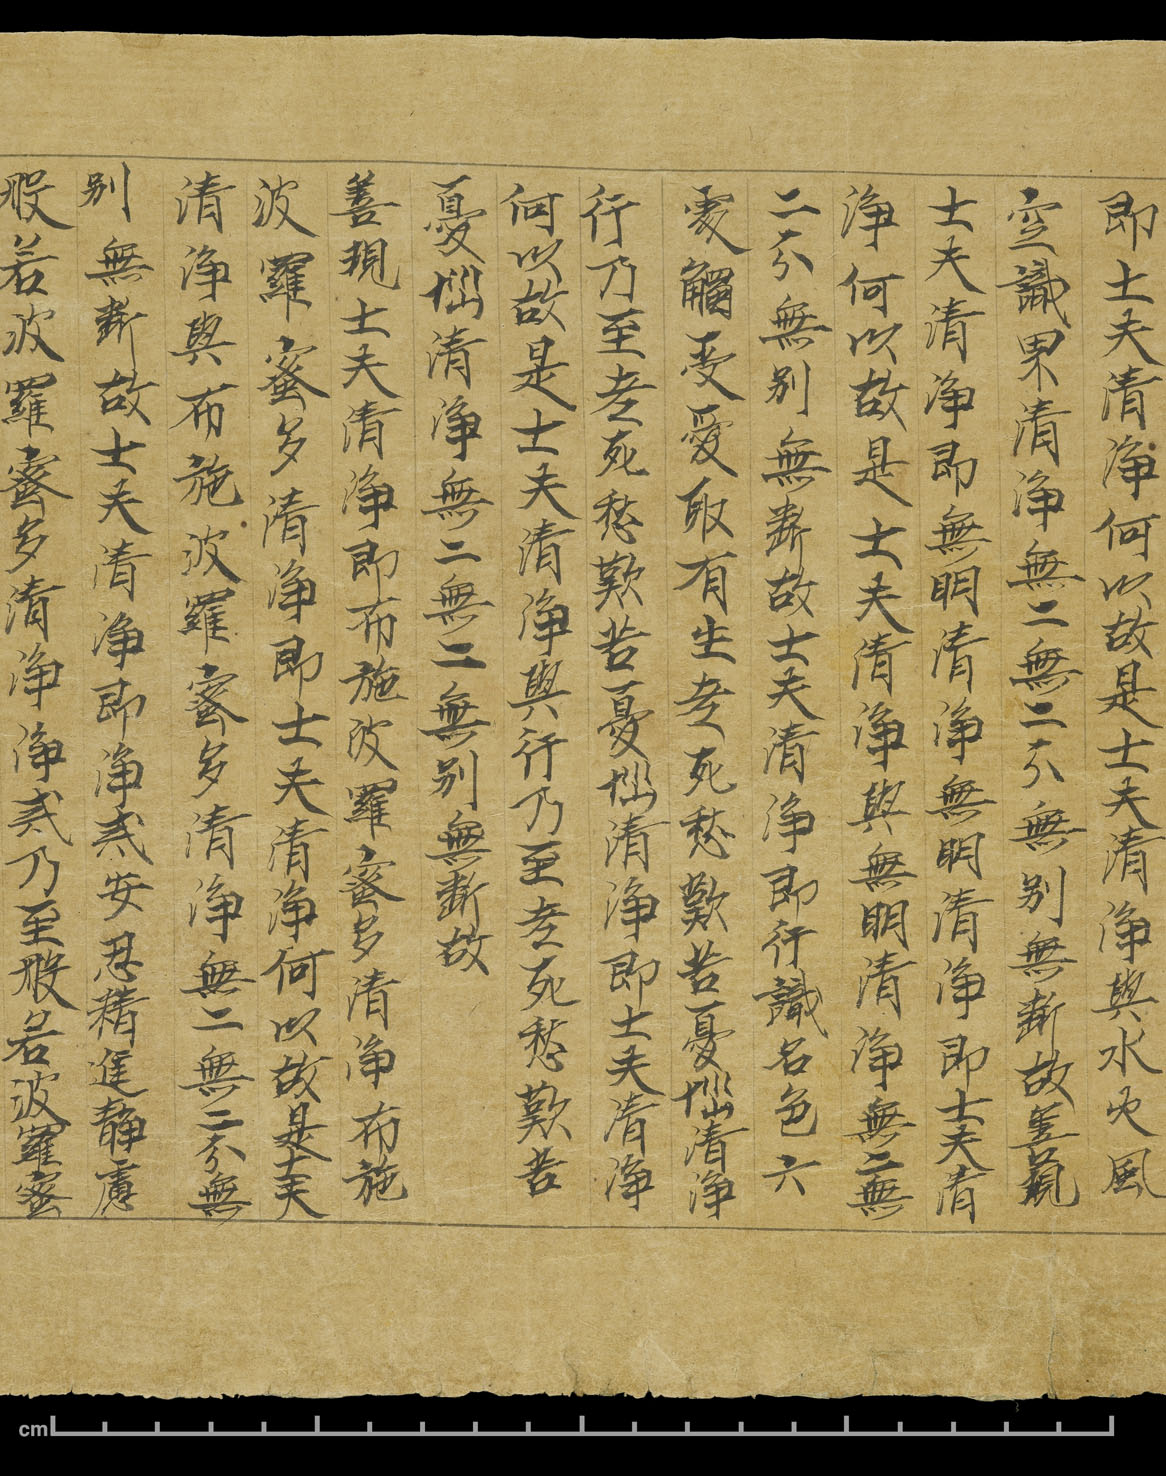 即士夫清淨何以故是士夫清淨與水火風
空識界清淨無二無二分無別無斷故善現
士夫清淨即無明清淨無明清淨即士夫清
淨何以故是士夫清淨與無明清淨無二無
二分無別無斷故士夫清淨即行識名色六
處觸受愛取有生老死愁歎苦憂惱清淨
行乃至老死愁歎苦憂惱清淨即士夫清淨
何以故是士夫清淨與行乃至老死愁歎苦
憂惱清淨無二無二無別無斷故
善現士夫清淨即布施波羅蜜多清淨布施
波羅蜜多清淨即士夫清淨何以故是士夫
清淨與布施波羅蜜多清淨無二無二分無
別無斷故士夫清淨即淨戒安忍精進靜慮
般若波羅蜜多清淨淨戒乃至般若波羅蜜
cm